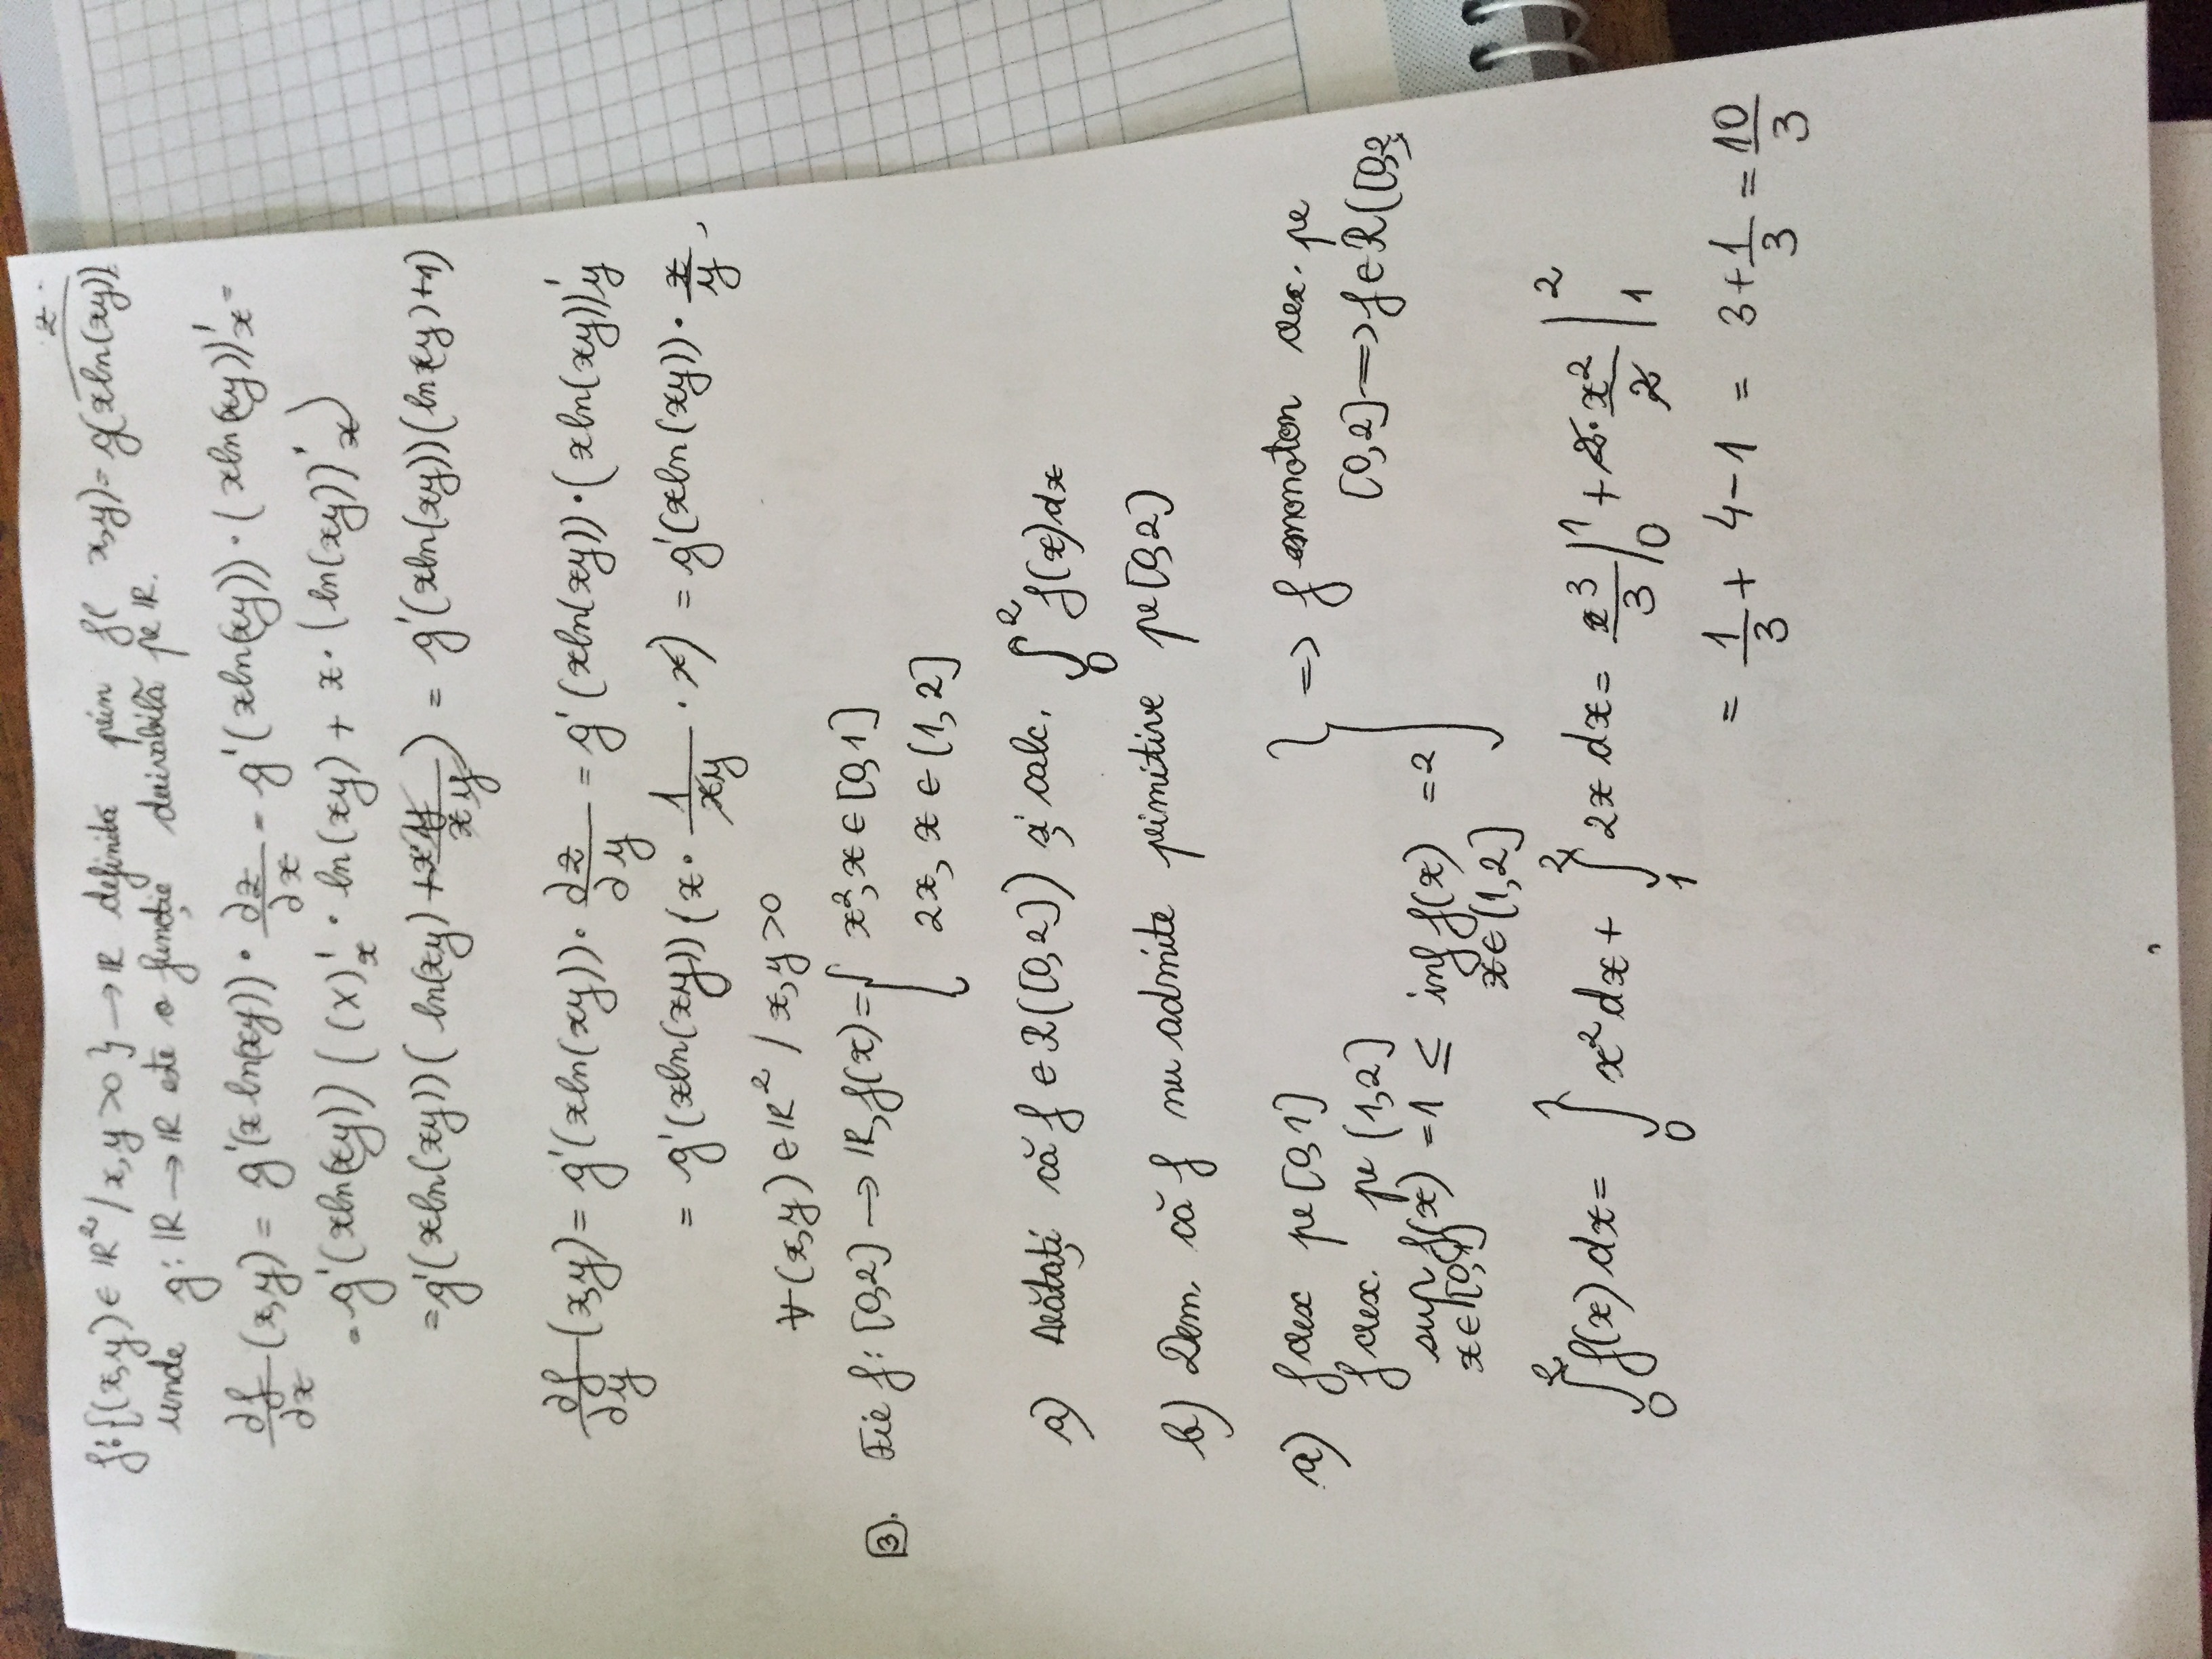 z
f: {(x,y) ∈ ℝ² / x, y > 0 } → ℝ definită prin f( x,y) = g(x ln(xy))
unde g: ℝ → ℝ este o funcție derivabilă pe ℝ.
∂f/∂x (x,y) = g'(x ln(xy)) · ∂z/∂x = g'(x ln(xy)) · (x ln(xy))'x =
= g'(x ln(xy)) ( (x)'x · ln(xy) + x · (ln(xy))'x )
= g'(x ln(xy)) ( ln(xy) + x·y/xy ) = g'(x ln(xy)) (ln(xy) + 1)
∂f/∂y (x,y) = g'(x ln(xy)) · ∂z/∂y = g'(x ln(xy)) · (x ln(xy))'y
= g'(x ln(xy)) (x · 1/xy · x) = g'(x ln(xy)) · x/y ,
∀ (x,y) ∈ ℝ² / x, y > 0
3. Fie f: [0,2] → ℝ, f(x) = { x², x ∈ [0,1]
2x, x ∈ (1,2]
a) Arătați că f ∈ R([0,2]) și calc. ∫₀² f(x) dx
b) Dem. că f nu admite primitive pe [0,2]
a) f cresc pe [0,1] } ⇒ f monoton cresc. pe
f cresc. pe (1,2] [0,2] ⇒ f ∈ R([0,2
sup f(x) = 1 ≤ inf f(x) = 2
x∈[0,1] x∈(1,2]
∫₀² f(x) dx = ∫₀¹ x² dx + ∫₁² 2x dx = x³/3 |₀¹ + 2 · x²/2 |₁²
= 1/3 + 4 - 1 = 3 + 1/3 = 10/3